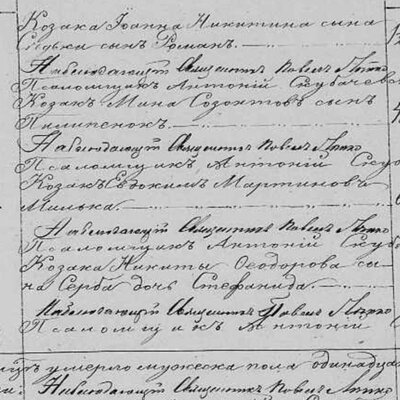 Козака Іоанна Никитина сына
сынъ Романъ.
Наблюдающій Священникъ Павелъ
Псаломщикъ Антоній
Козакъ Мина Созонтовъ сынъ
Пилипенокъ.
Наблюдающій Священникъ Павелъ
Псаломщикъ Антоній
Козакъ Евдокимъ Мартиновъ
Милька.
Наблюдающій Священникъ Павелъ
Псаломщикъ Антоній
Козака Никиты Ѳеодорова сы-
на Серба дочь Стефанида.
Наблюдающій Священникъ Павелъ
Псаломщикъ Антоній
умерло мужеска пола одинадца
Наблюдающій Священникъ Павелъ